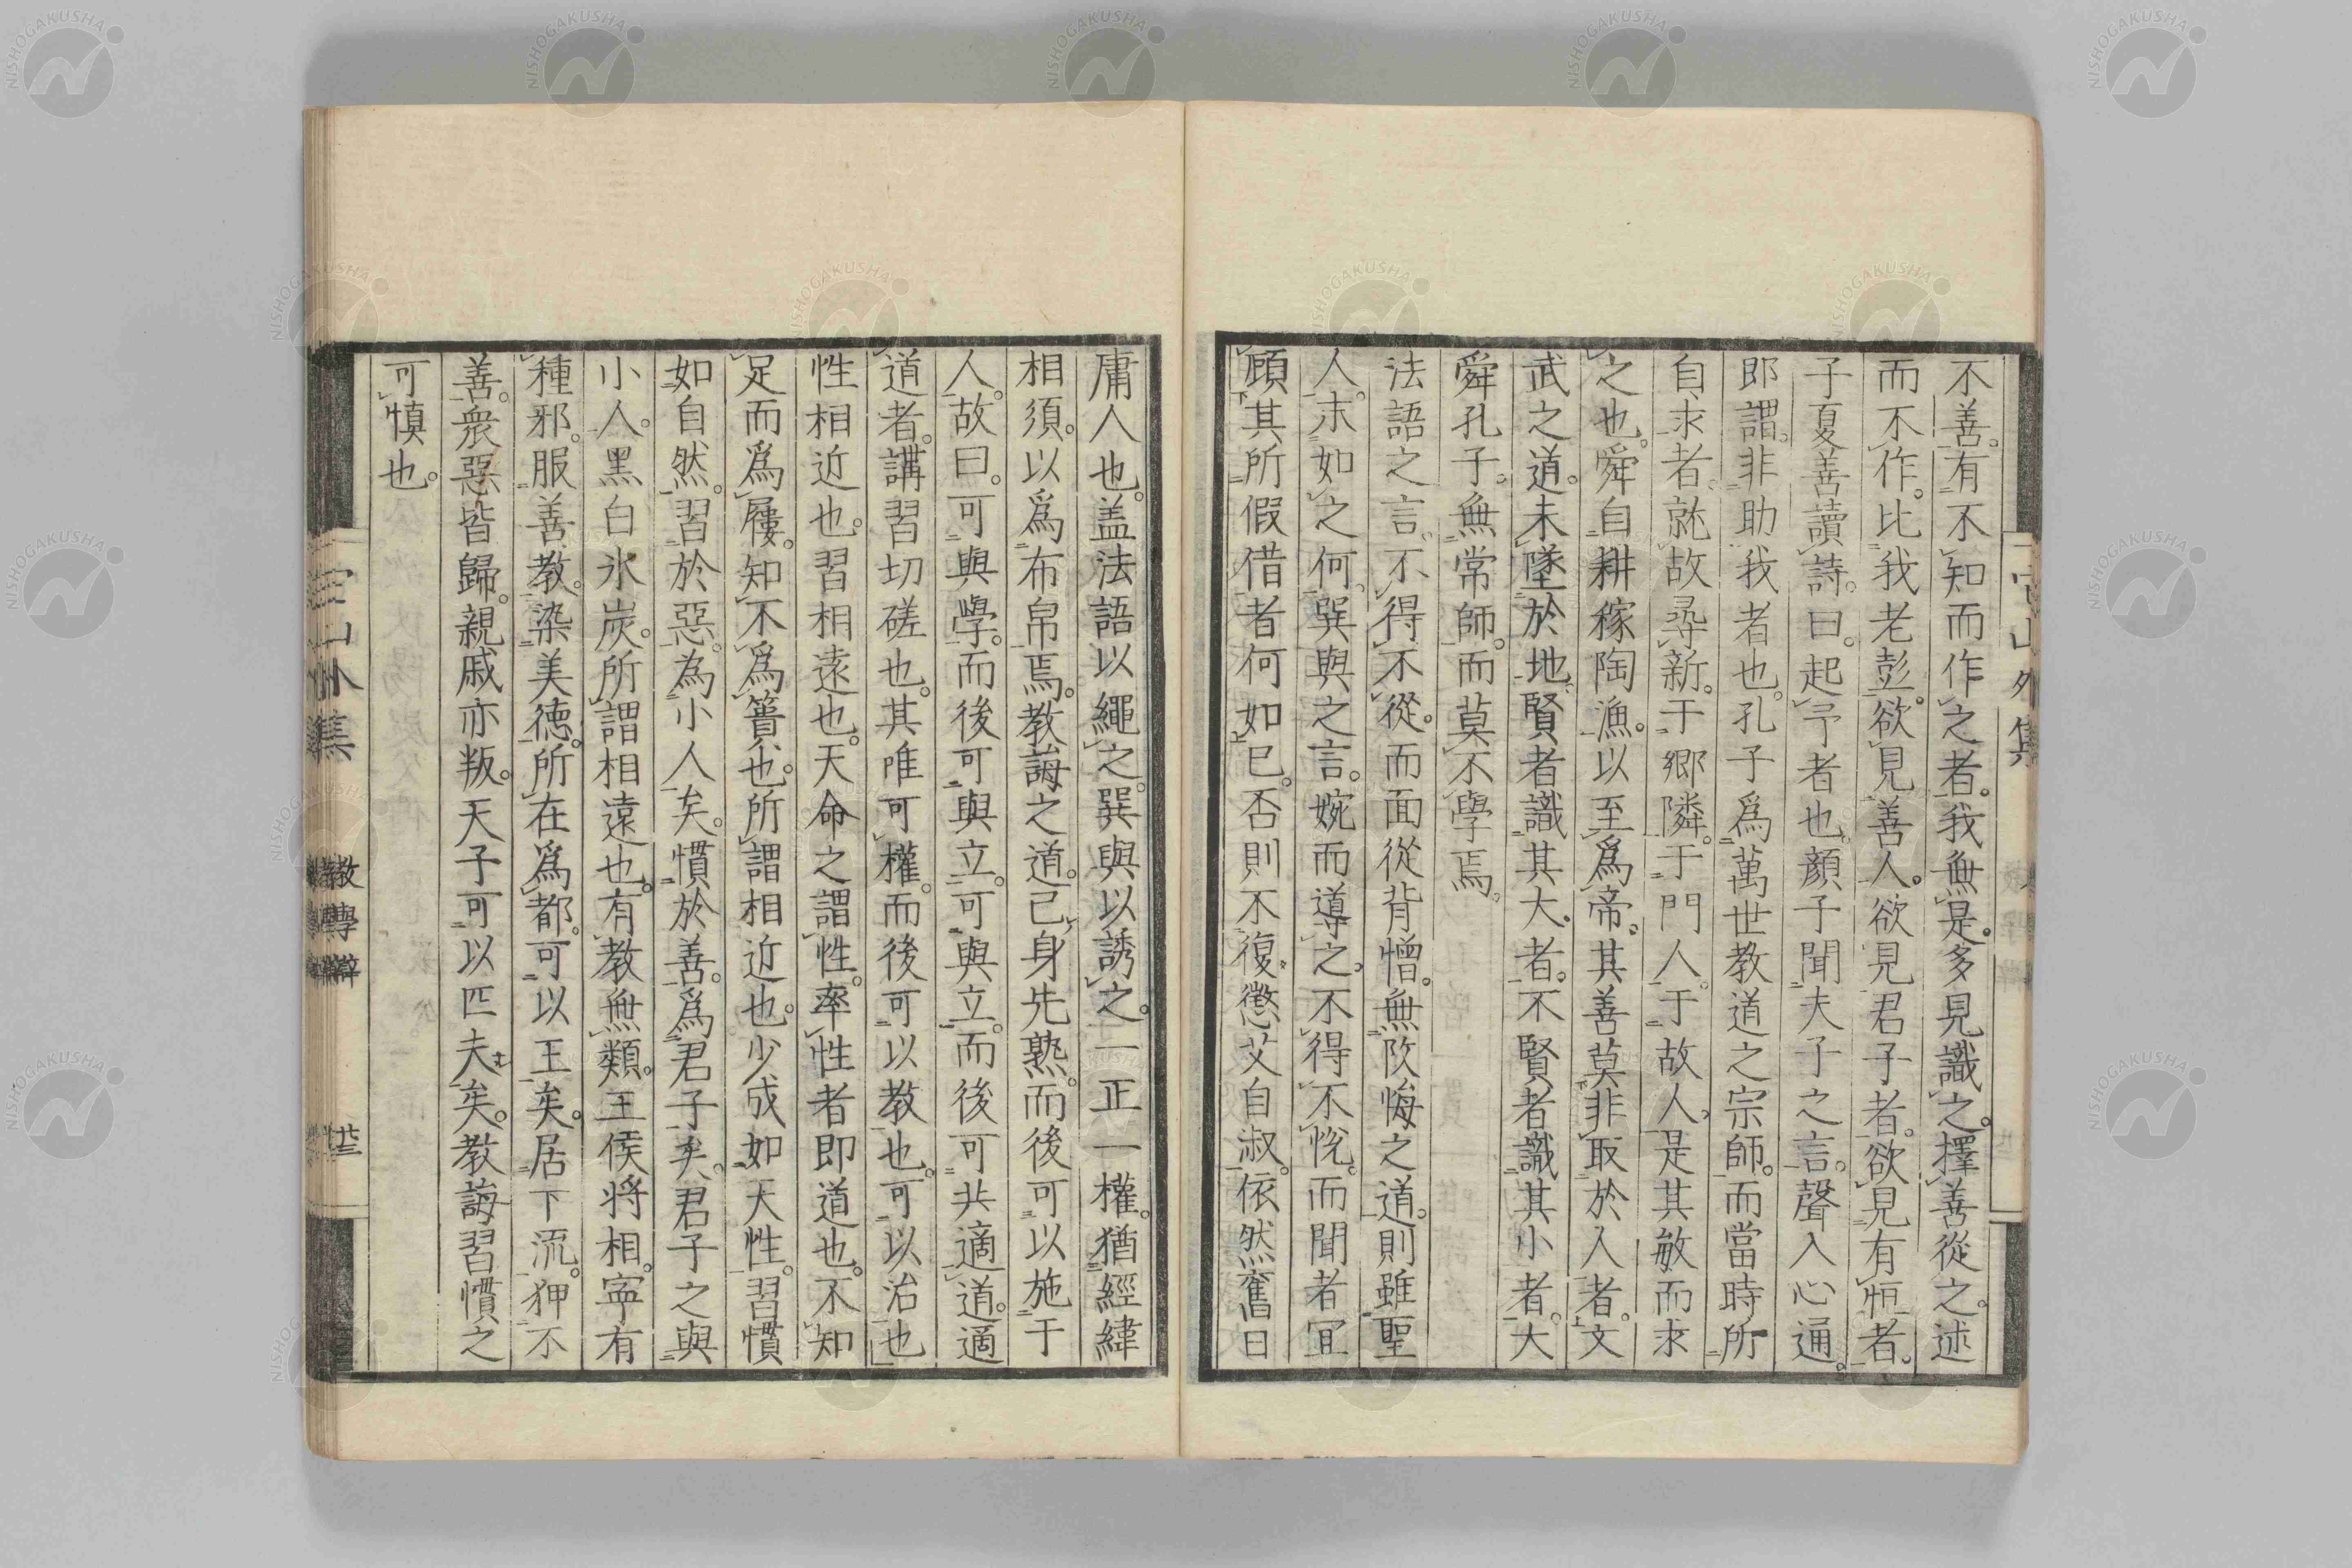 不善。有不知而作之者。我無是。多見識之。擇善從之。述
而不作。比我老彭。欲見善人。欲見君子者。欲見有恒者。
子夏善讀詩。曰。起予者也。顏子聞夫子之言。聲入心通。
即謂。非助我者也。孔子爲萬世教道之宗師。而當時所
自求者。就故尋新。于鄉隣。于門人。于故人。是其敏而求
之也。舜自耕稼陶漁。以至爲帝。其善莫非取於人者。文
武之道。未墜於地。賢者識其大者。不賢者識其小者。大
舜孔子。無常師。而莫不學焉。
法語之言。不得不從。而面從背憎。無改悔之道。則雖聖
人。末如之何。巽與之言。婉而導之。不得不悅。而聞者宜
顧其所假借者何如已。否則不復懲艾自淑。依然奮日
庸人也。盖法語以繩之。巽與以誘之。一正一權。猶經緯
相須。以爲布帛焉。教誨之道。己身先熟。而後可以施于
人。故曰。可與學。而後可與立。可與立。而後可共適道。適
道者。講習切磋也。其唯可權。而後可以教也。可以治也
性相近也。習相遠也。天命之謂性。率性者即道也。不知
足而爲屨。知不爲簣也。所謂相近也。少成如天性。習慣
如自然。習於惡。為小人矣。慣於善。爲君子矣。君子之與
小人。黑白氷炭。所謂相遠也。有教無類。王侯将相。寧有
種邪。服善教。染美德。所在為都。可以王矣。居下流。狎不
善。衆惡皆歸。親戚亦叛。天子可以匹夫矣。教誨習慣之
可慎也。
山外集
教學辯
廿三
NISHOGAKUSHA